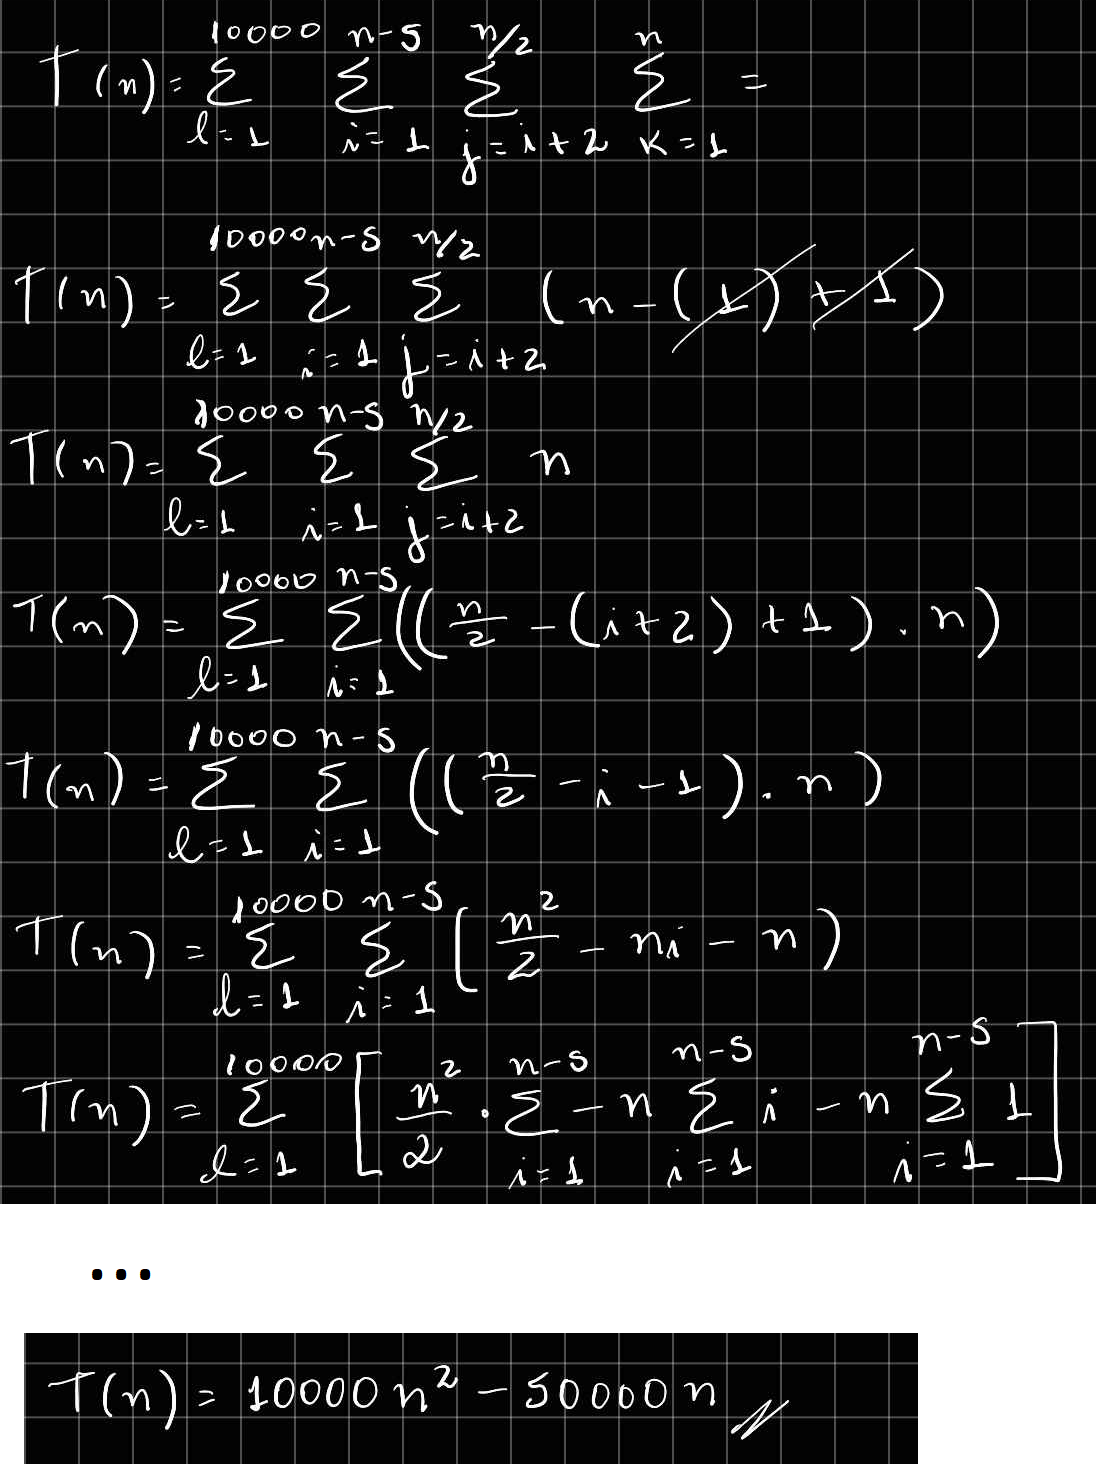 T(n) = \sum_{l=1}^{10000} \sum_{i=1}^{n-5} \sum_{j=i+2}^{n/2} \sum_{k=1}^{n} =
T(n) = \sum_{l=1}^{10000} \sum_{i=1}^{n-5} \sum_{j=i+2}^{n/2} (n - (1) + 1)
T(n) = \sum_{l=1}^{10000} \sum_{i=1}^{n-5} \sum_{j=i+2}^{n/2} n
T(n) = \sum_{l=1}^{10000} \sum_{i=1}^{n-5} ((\frac{n}{2} - (i+2) + 1) . n)
T(n) = \sum_{l=1}^{10000} \sum_{i=1}^{n-5} ((\frac{n}{2} - i - 1) . n)
T(n) = \sum_{l=1}^{10000} \sum_{i=1}^{n-5} [\frac{n^2}{2} - ni - n)
T(n) = \sum_{l=1}^{10000} [\frac{n^2}{2} . \sum_{i=1}^{n-5} - n \sum_{i=1}^{n-5} i - n \sum_{i=1}^{n-5} 1]
...
T(n) = 10000n^2 - 50000n